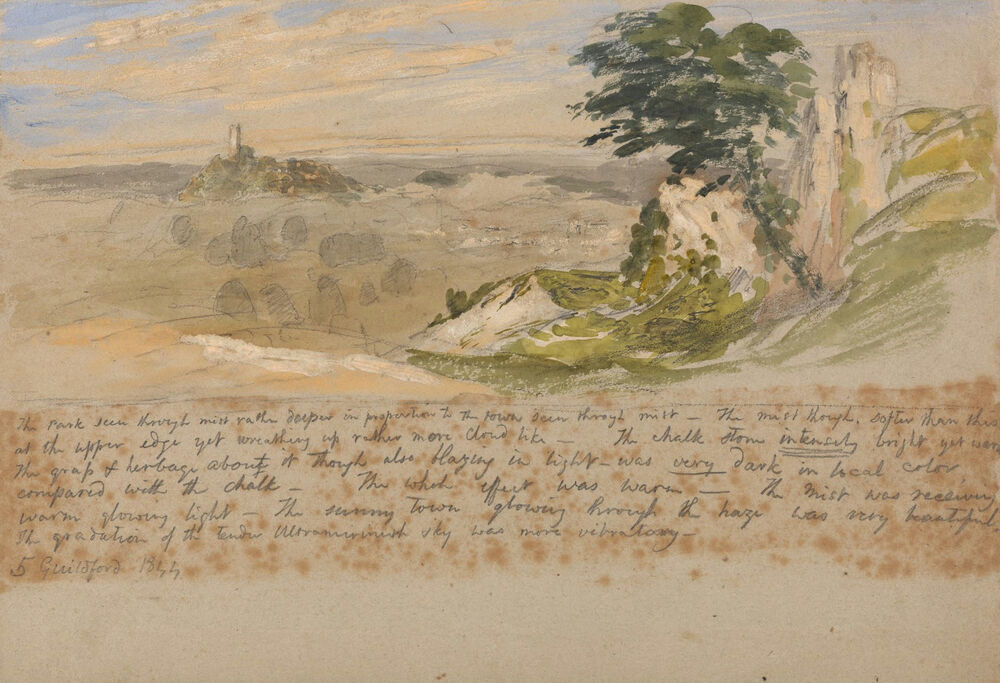 The Park seen through mist rather deeper in proportion to the town seen through mist — The mist though, softer than this
at the upper edge yet wreathing up rather more cloud like — The chalk stone intensely bright yet warm
The grass & herbage about it though also blazing in light — was very dark in local color
compared with the chalk — The whole effect was warm — The mist was receiving
warm glowing light — The sunny town glowing through the haze was very beautiful
The gradation of the tender Ultramarinish sky was more vibratory —
5 Guildford 1844